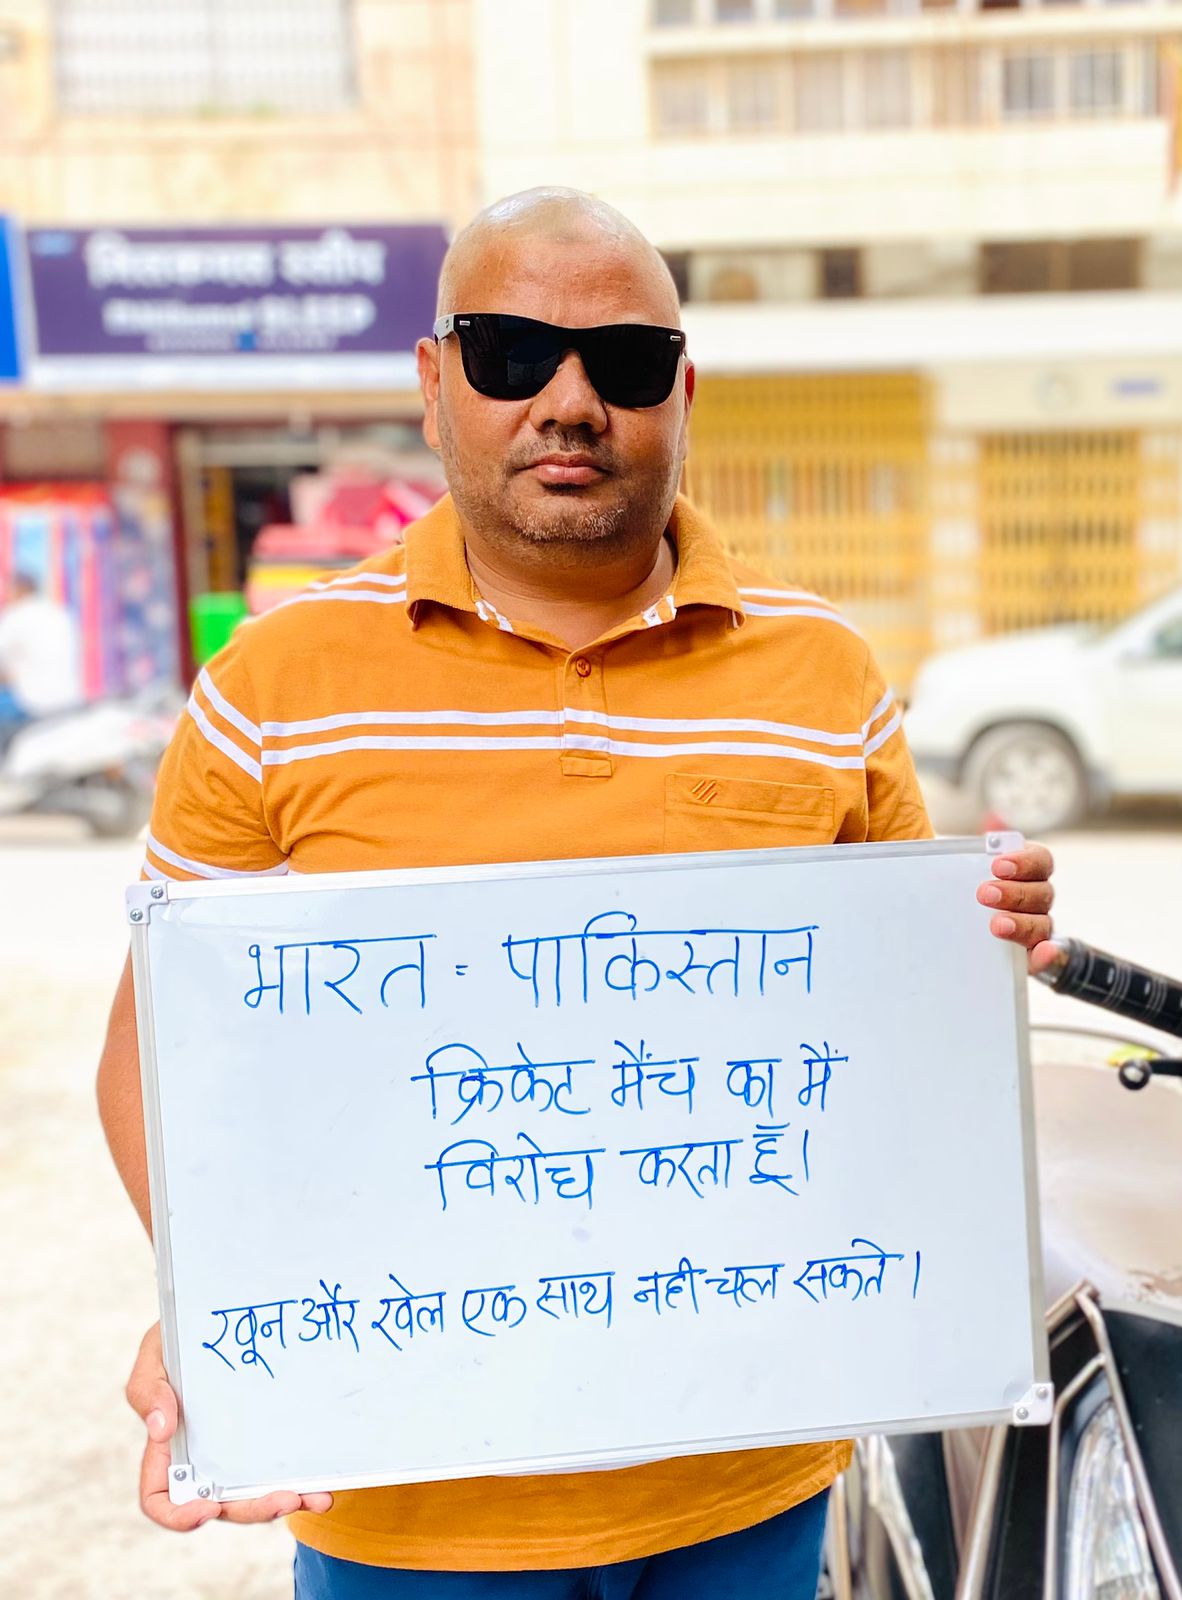 भारत - पाकिस्तान
क्रिकेट मैंच का मैं
विरोध करता हूँ।
खून और खेल एक साथ नही चल सकते।